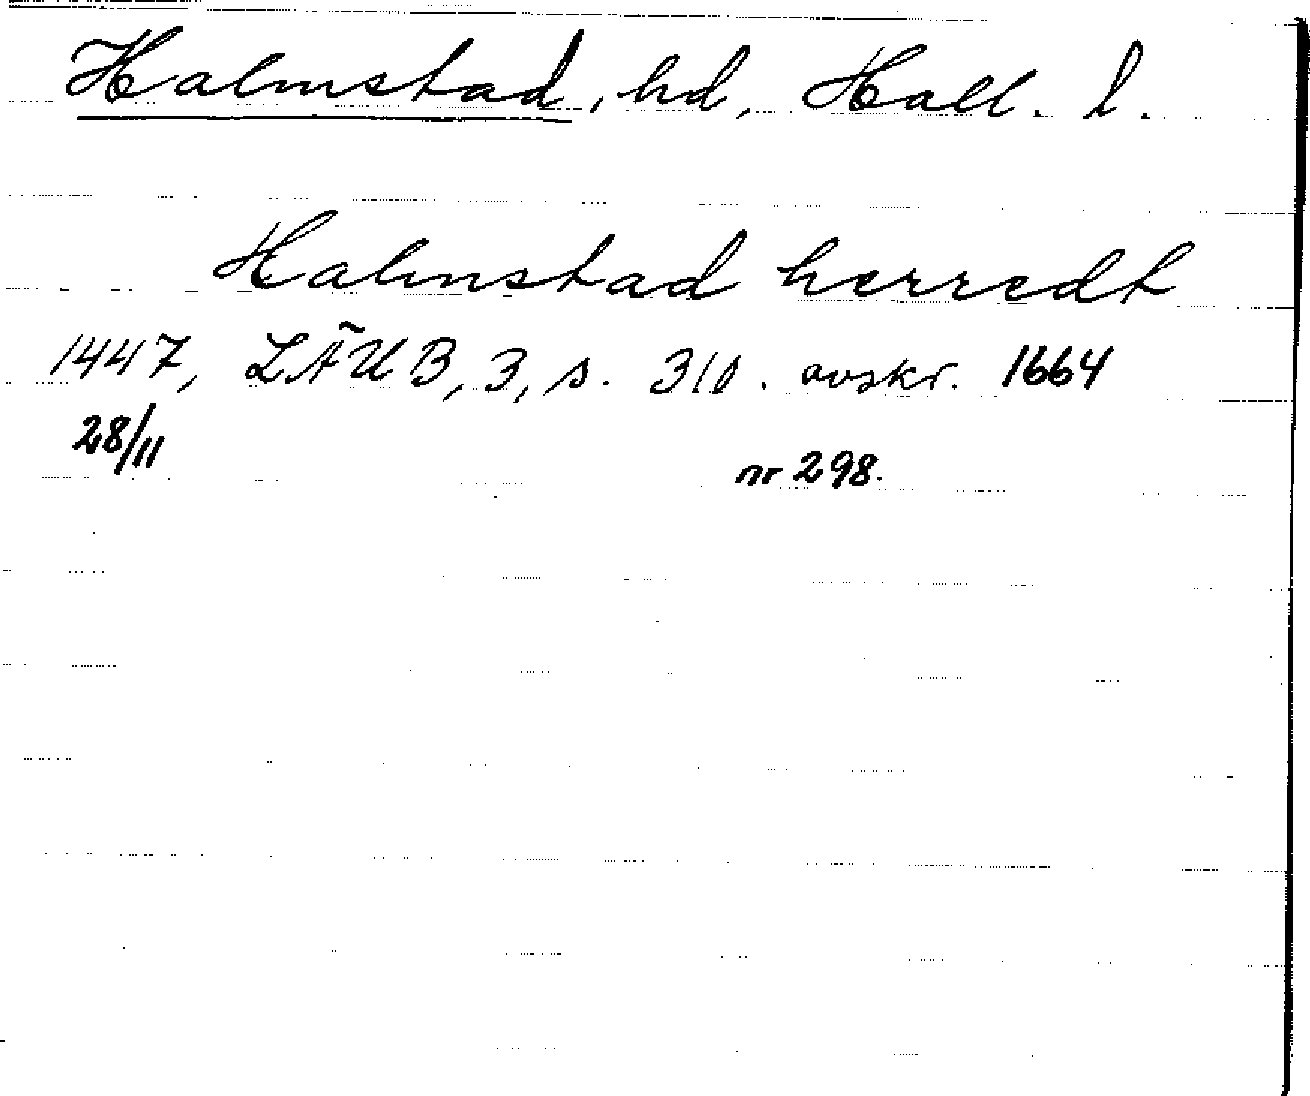 Halmstad, hd, Hall. l.
Halmstad herredt
1447, LÄUB, 3, s. 310. avskr. 1664
28/11 nr 298.